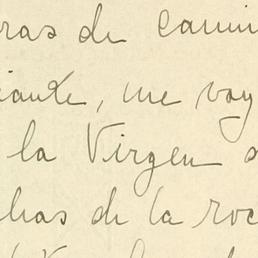 ras de cami
iante, me voy
la Virgen s
has de la roc